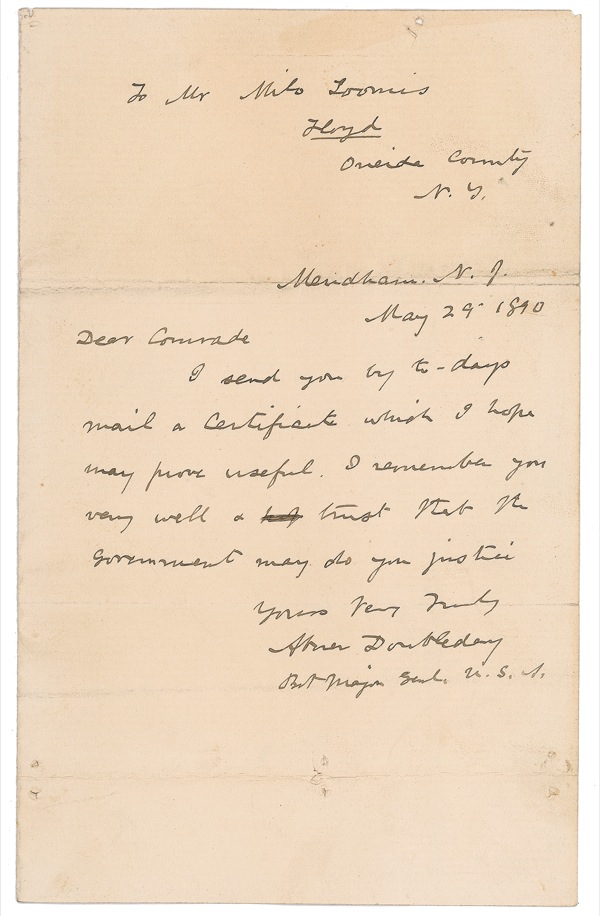 To Mr Milo Loomis
Floyd
Oneida County
N. Y.
Mendham. N. J.
May 29 1890
Dear Comrade
I send you by to-days
mail a Certificate which I hope
may prove useful. I remember you
very well & trust that the
Government may do you justice
Yours Very Truly
Abner Doubleday
Bvt Major Genl. U. S. A.